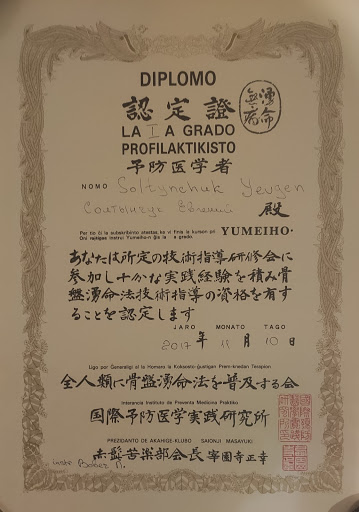 DIPLOMO
認定證
湧命
無病
LA I A GRADO
PROFILAKTIKISTO
予防医学者
NOMO Soltynchuk Yevgen
Солтынчук Евгений 殿
Per tio ĉi la subskribanto atestas ke vi finis la kurson pri YUMEIHO.
Oni rajtigas instrui Yumeiho-n ĝis la a grado.
あなたは所定の技術指導研修会に
参加し十分な実践経験を積み骨
盤湧命法技術指導の資格を有す
ることを認定します
JARO MONATO TAGO
2017 年 11 月 10 日
Ligo por Generaligi al la Homaro la Koksosto-ĝustigan Prem-knedan Terapion
全人類に骨盤湧命法を普及する会
Internacia Instituto de Preventa Medicina Praktiko
国際予防医学実践研究所
PREZIDANTO DE AKAHIGE-KLUBO SAIONJI MASAYUKI
赤髭苦楽部会長 宰園寺正幸